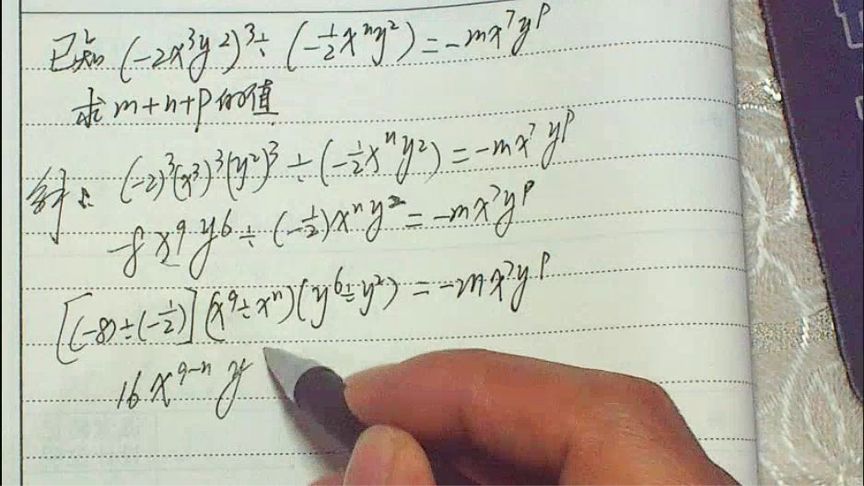 已知 (-2x³y²)³÷(-½xⁿy²)=-mx⁷yᵖ
求m+n+p的值
解: (-2)³(x³)³(y²)³÷(-½xⁿy²)=-mx⁷yᵖ
-8x⁹y⁶÷(-½)xⁿy²=-mx⁷yᵖ
[(-8)÷(-½)](x⁹÷xⁿ)(y⁶÷y²)=-mx⁷yᵖ
16x⁹⁻ⁿy